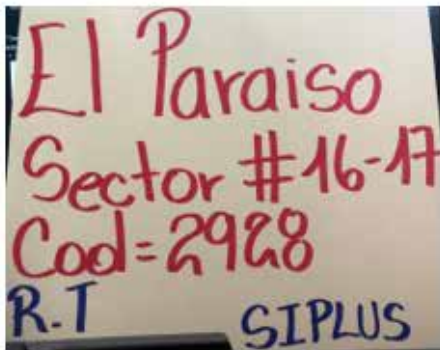 El Paraiso
Sector #16-17
Cod=2928
R.T SIPLUS